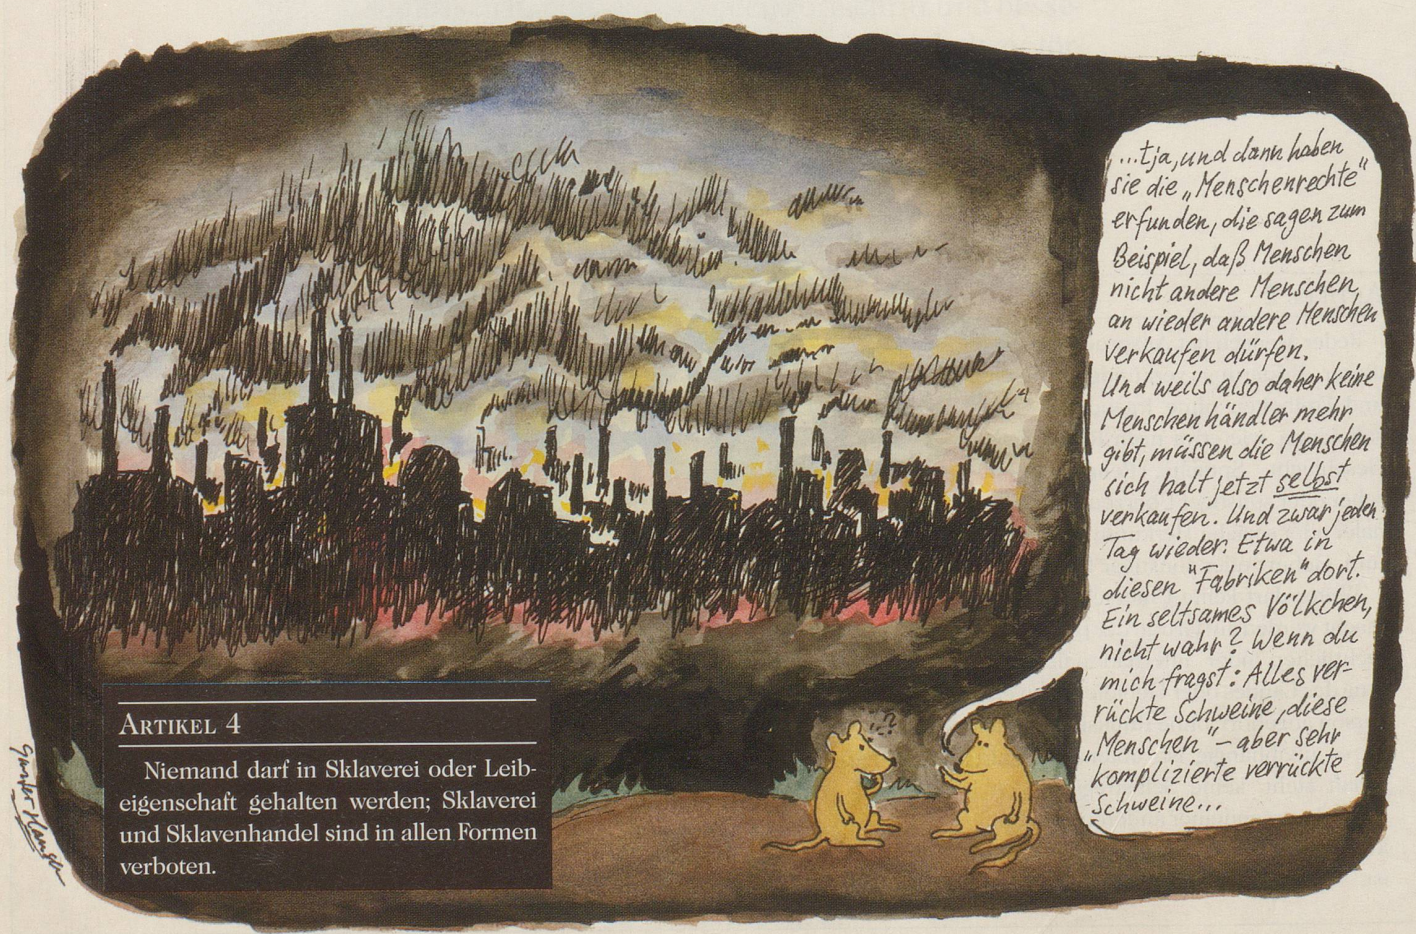 ...tja, und dann haben
sie die „Menschenrechte“
erfunden, die sagen zum
Beispiel, daß Menschen
nicht andere Menschen
an wieder andere Menschen
verkaufen dürfen.
Und weils also daher keine
Menschenhändler mehr
gibt, müssen die Menschen
sich halt jetzt selbst
verkaufen. Und zwar jeden
Tag wieder. Etwa in
diesen "Fabriken" dort.
Ein seltsames Völkchen,
nicht wahr? Wenn du
mich fragst: Alles ver-
rückte Schweine, diese
„Menschen“ – aber sehr
komplizierte verrückte
Schweine...
?
ARTIKEL 4
Niemand darf in Sklaverei oder Leib-
eigenschaft gehalten werden; Sklaverei
und Sklavenhandel sind in allen Formen
verboten.